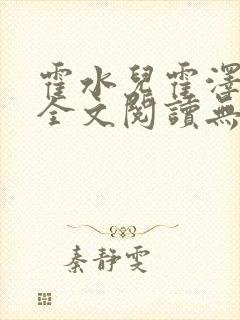 霍水兒霍澤
全文閱讀無
秦靜雯